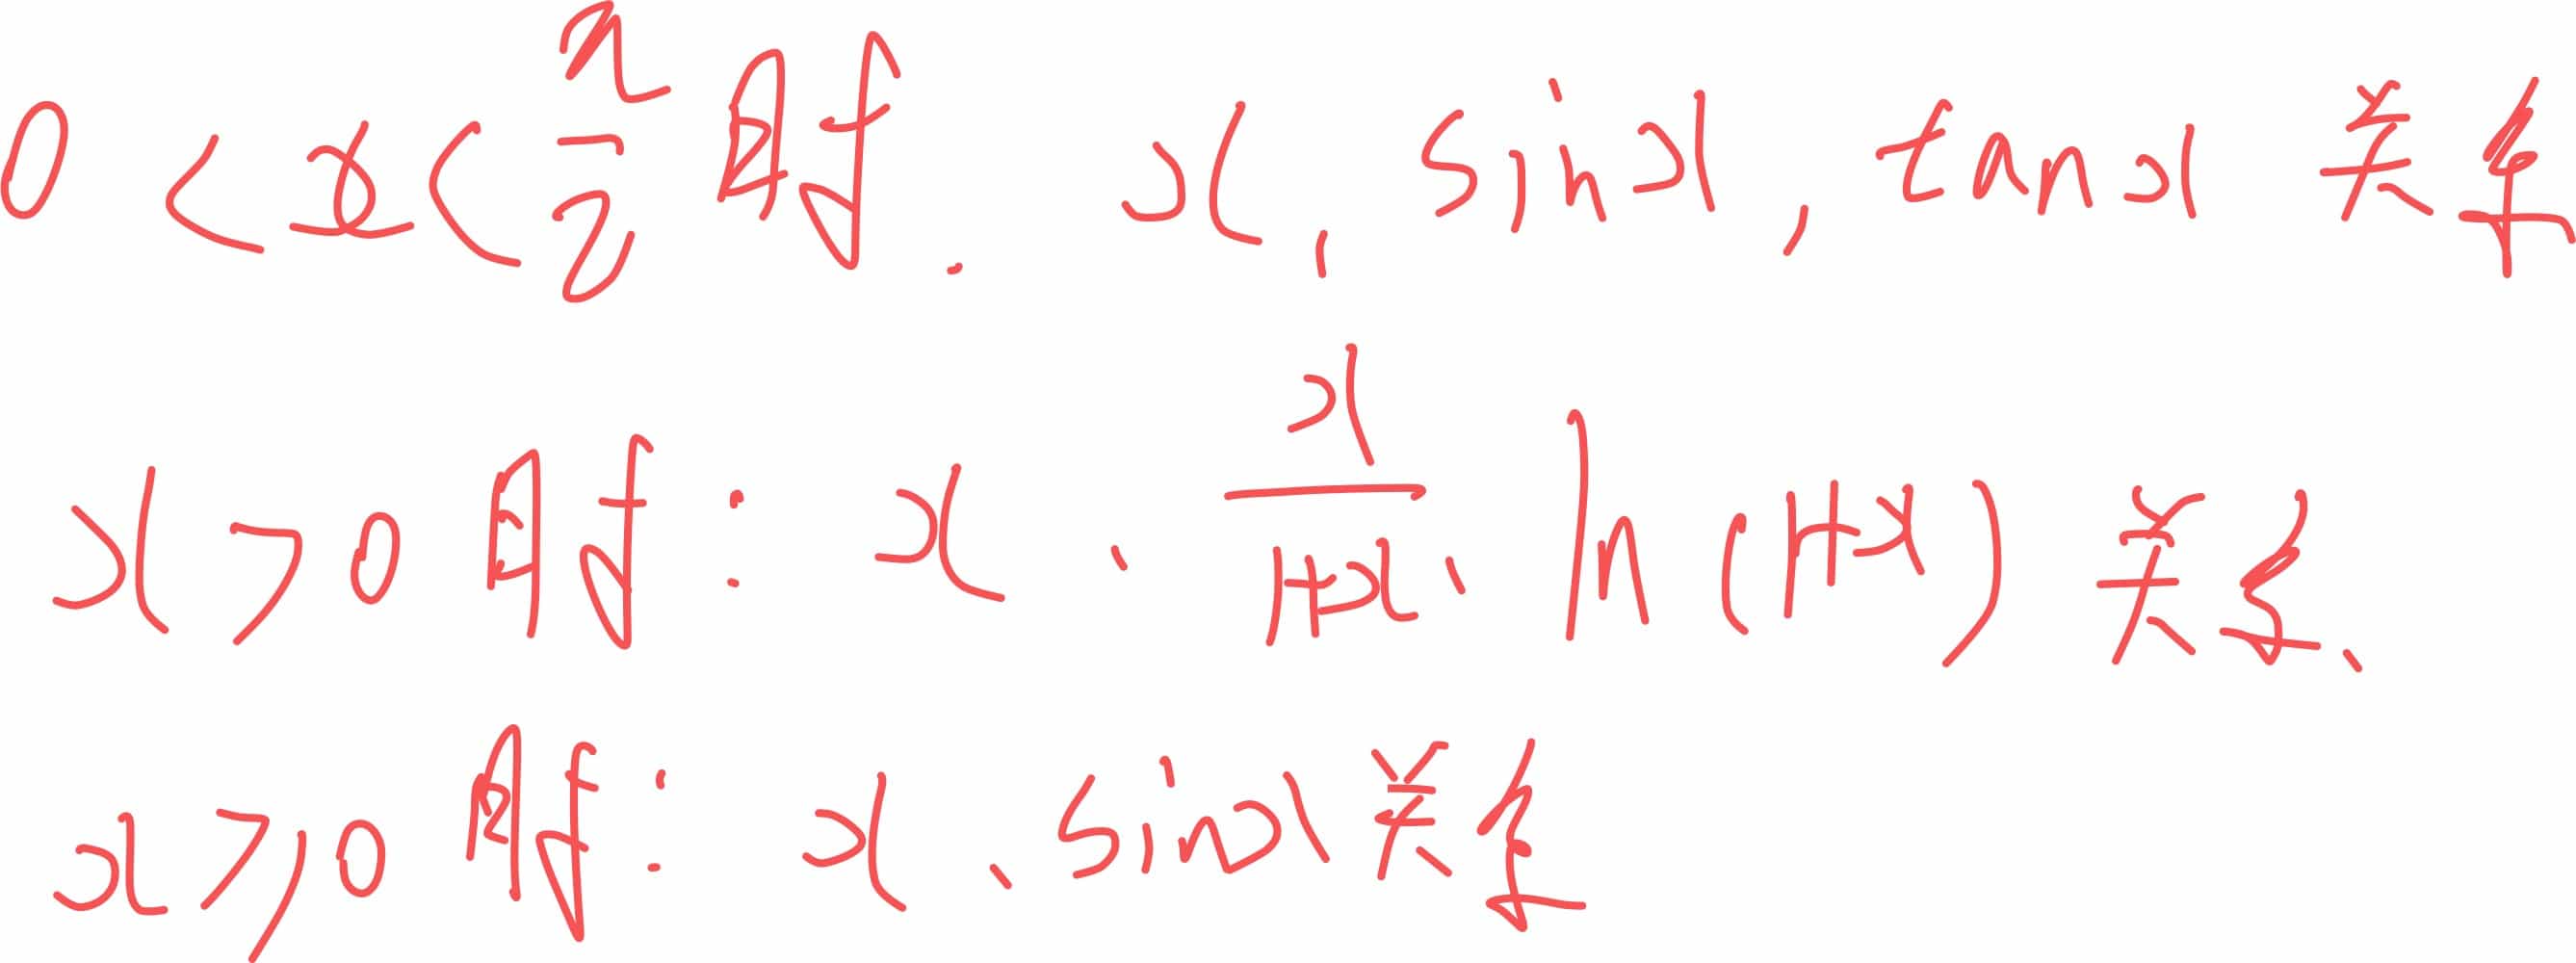 0<x<π/2时. x, sinx, tanx 关系
x>0时: x、x/(1+x)、ln(1+x)关系、
x≥0时: x、sinx关系